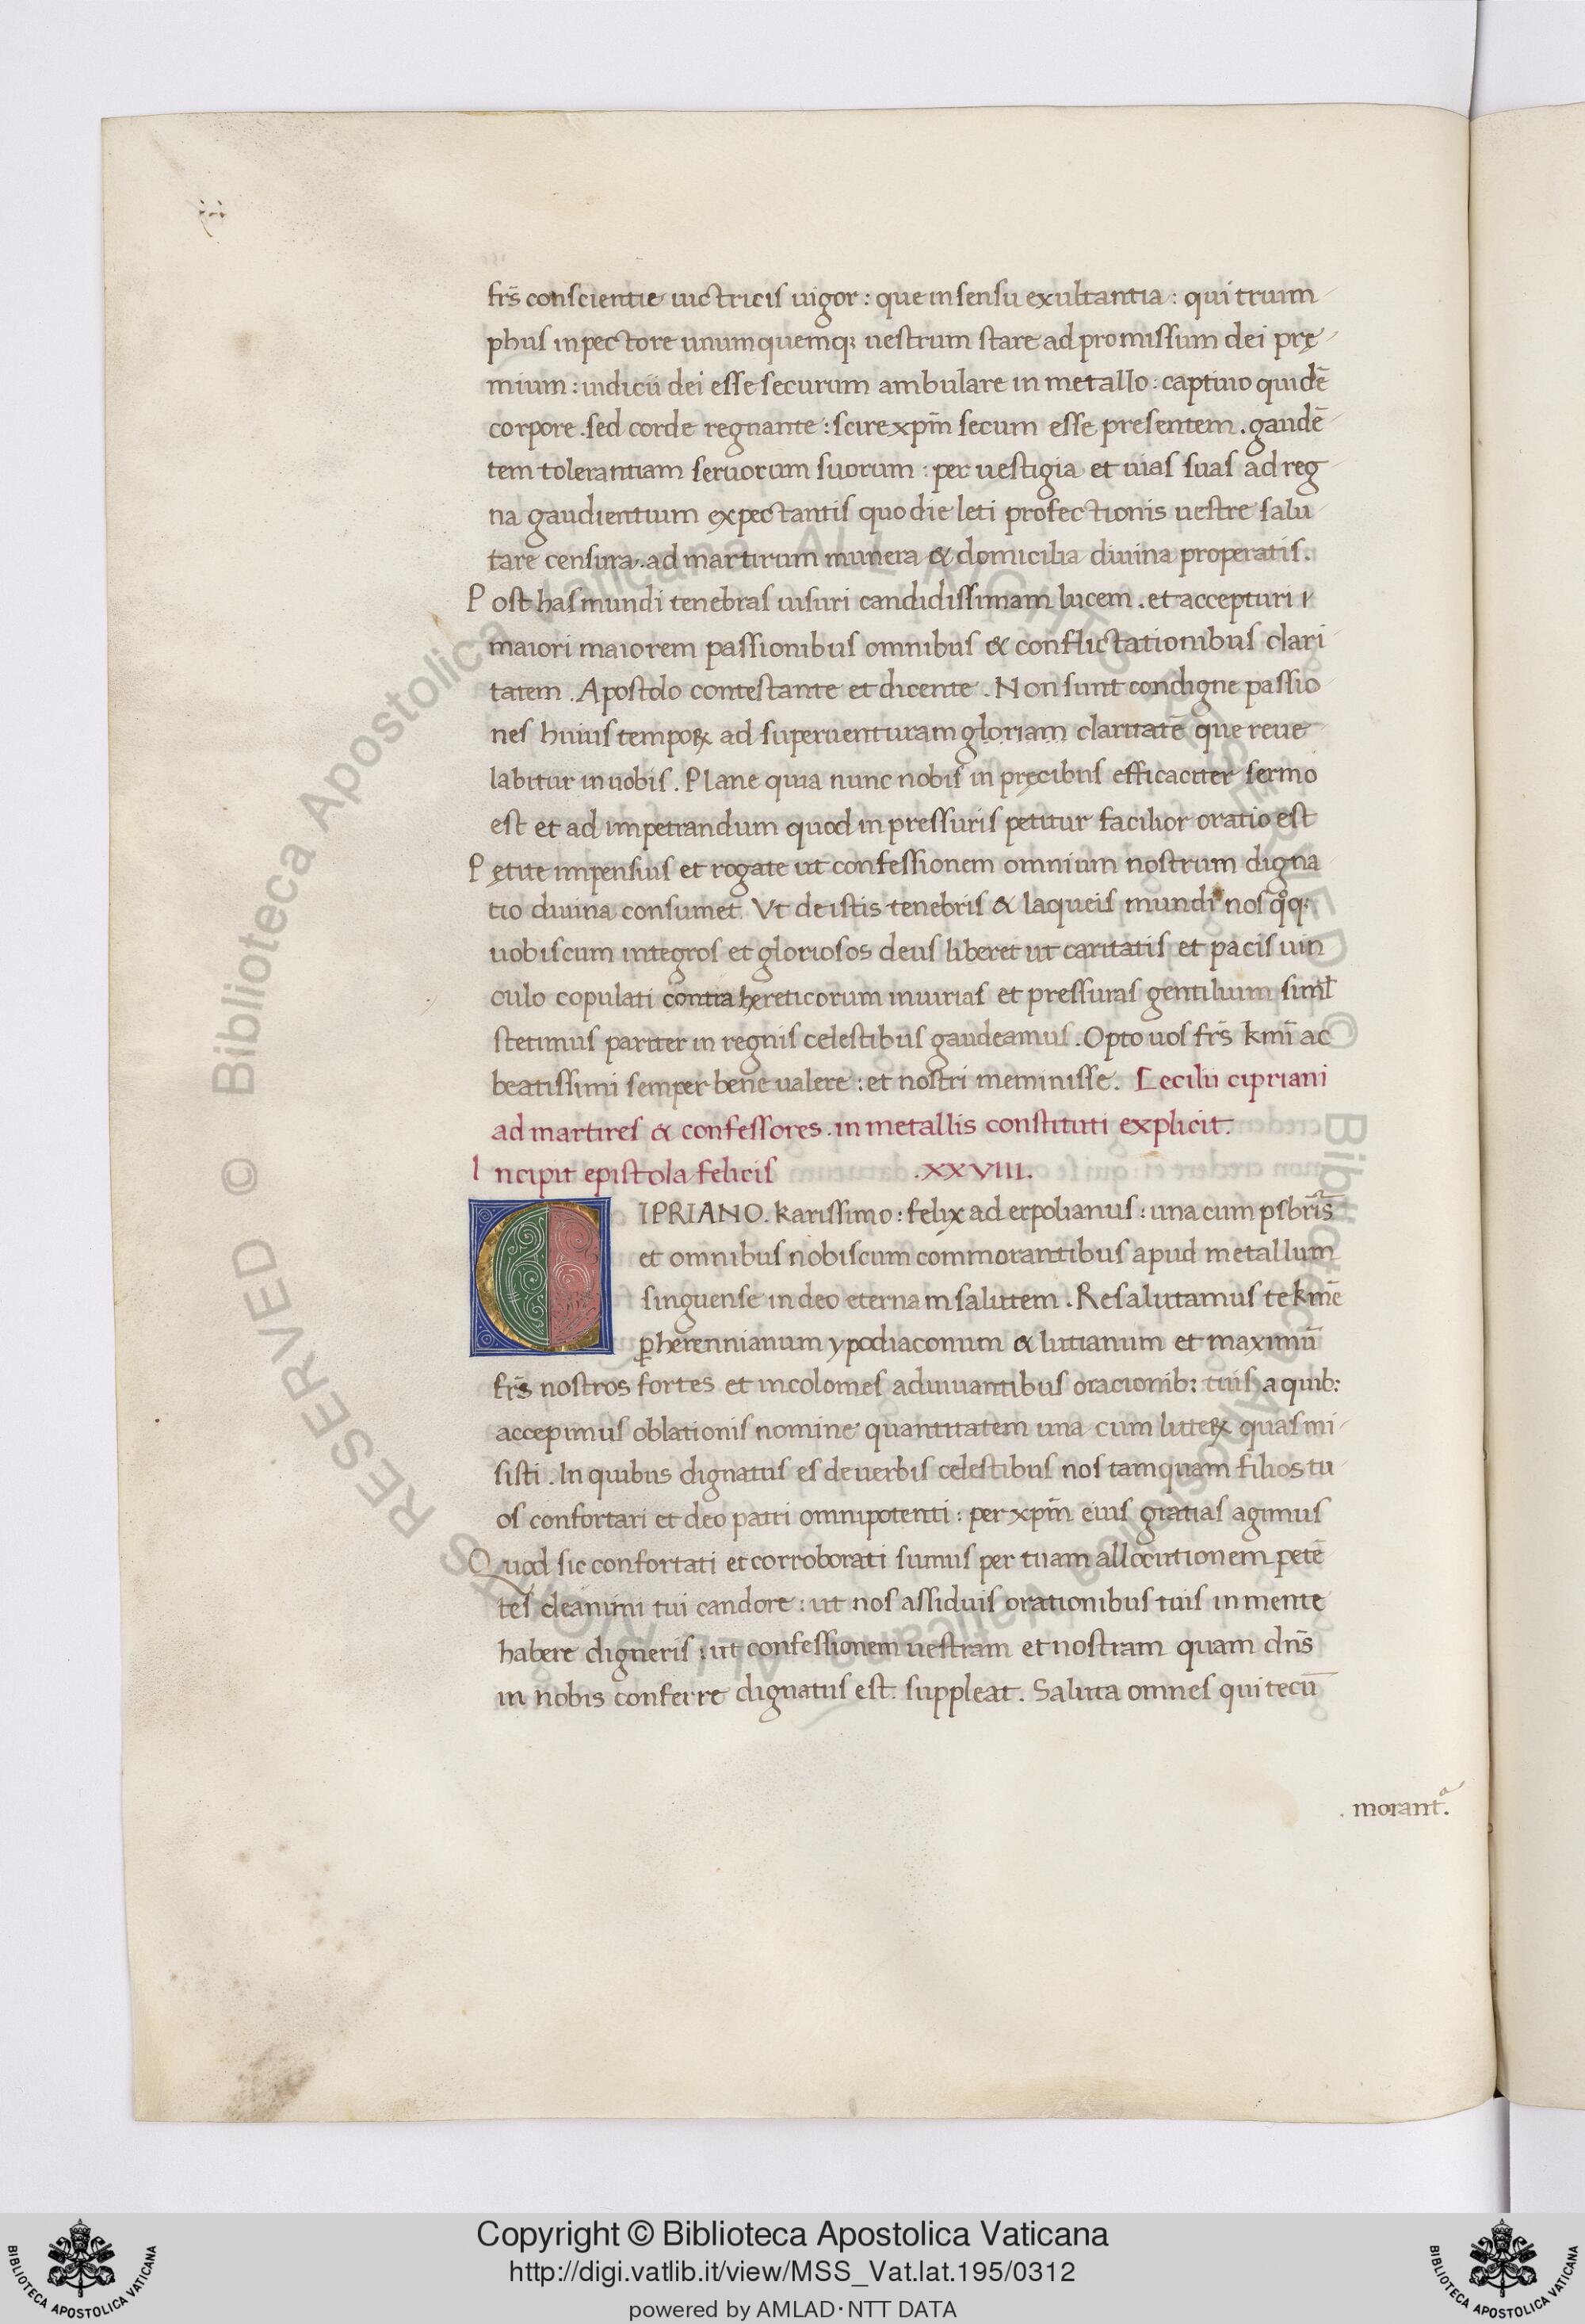 frs̄ conscientie uictricis uigor : que in sensu exultantia : qui trium
phus in pectore unumquemq; uestrum stare ad promissum dei prę
mium : iudicii dei esse securum ambulare in metallo : captiuo quidē
corpore . sed corde regnante : scire xpm̄ secum esse presentem . gaudē
tem tolerantiam seruorum suorum : per uestigia et uias suas ad reg
na gaudientium expectantis quo die leti profectionis uestre salu
tare censura . ad martirum munera & domicilia diuina properatis .
Post has mundi tenebras uisuri candidissimam lucem . et accepturi
maiori maiorem passionibus omnibus & conflictationibus clari
tatem . Apostolo contestante et dicente . Non sunt condigne passio
nes huius tempoꝝ ad superuenturam gloriam claritatē que reue
labitur in uobis . Plane quia nunc nobis in pręcibus efficaciter sermo
est et ad impetrandum quod in pressuris petitur facilior oratio est
Pętite impensius et rogate ut confessionem omnium nostrum digna
tio diuina consumet. Vt de istis tenebris & laqueis mundi nos qͦq;
uobiscum integros et gloriosos deus liberet ut caritatis et pacis uin
culo copulati contra hereticorum iniurias et pressuras gentilium siml̄
stetimus pariter in regnis celestibus gaudeamus . Opto uos frs̄ kmī ac
beatissimi semper bene ualere : et nostri meminisse . Cecilii cipriani
ad martires & confessores . in metallis constituti explicit .
Incipit epistola felicis .XXVIII.
CIPRIANO . karissimo : felix ad erpolianus : una cum psbrīs
et omnibus nobiscum commorantibus apud metallum
singuense in deo eternam salutem . Resalutamus te kmē
ꝑ herennianum ypodiaconum & lutianum et maximū
frs̄ nostros fortes et incolomes adiuuantibus oracionib; tuis . a quib;
accepimus oblationis nomine quantitatem una cum litteꝝ quas mi
sisti . In quibus dignatus es de uerbis celestibus nos tamquam filios tu
os confortari et deo patri omnipotenti : per xpm̄ eius gratias agimus
Quod sic confortati et corroborati sumus per tuam allocutionem petē
tes de animi tui candore : ut nos assiduis orationibus tuis in mente
habere digneris : ut confessionem uestram et nostram quam dns̄
in nobis conferre dignatus est . suppleat . Saluta omnes qui tecū
. morant͛ .
© Biblioteca Apostolica Vaticana ALL RIGHTS RESERVED © Biblioteca Apostolica Vaticana ALL RIGHTS RESERVED
Copyright © Biblioteca Apostolica Vaticana
http://digi.vatlib.it/view/MSS_Vat.lat.195/0312
powered by AMLAD·NTT DATA
BIBLIOTECA APOSTOLICA VATICANA
BIBLIOTECA APOSTOLICA VATICANA